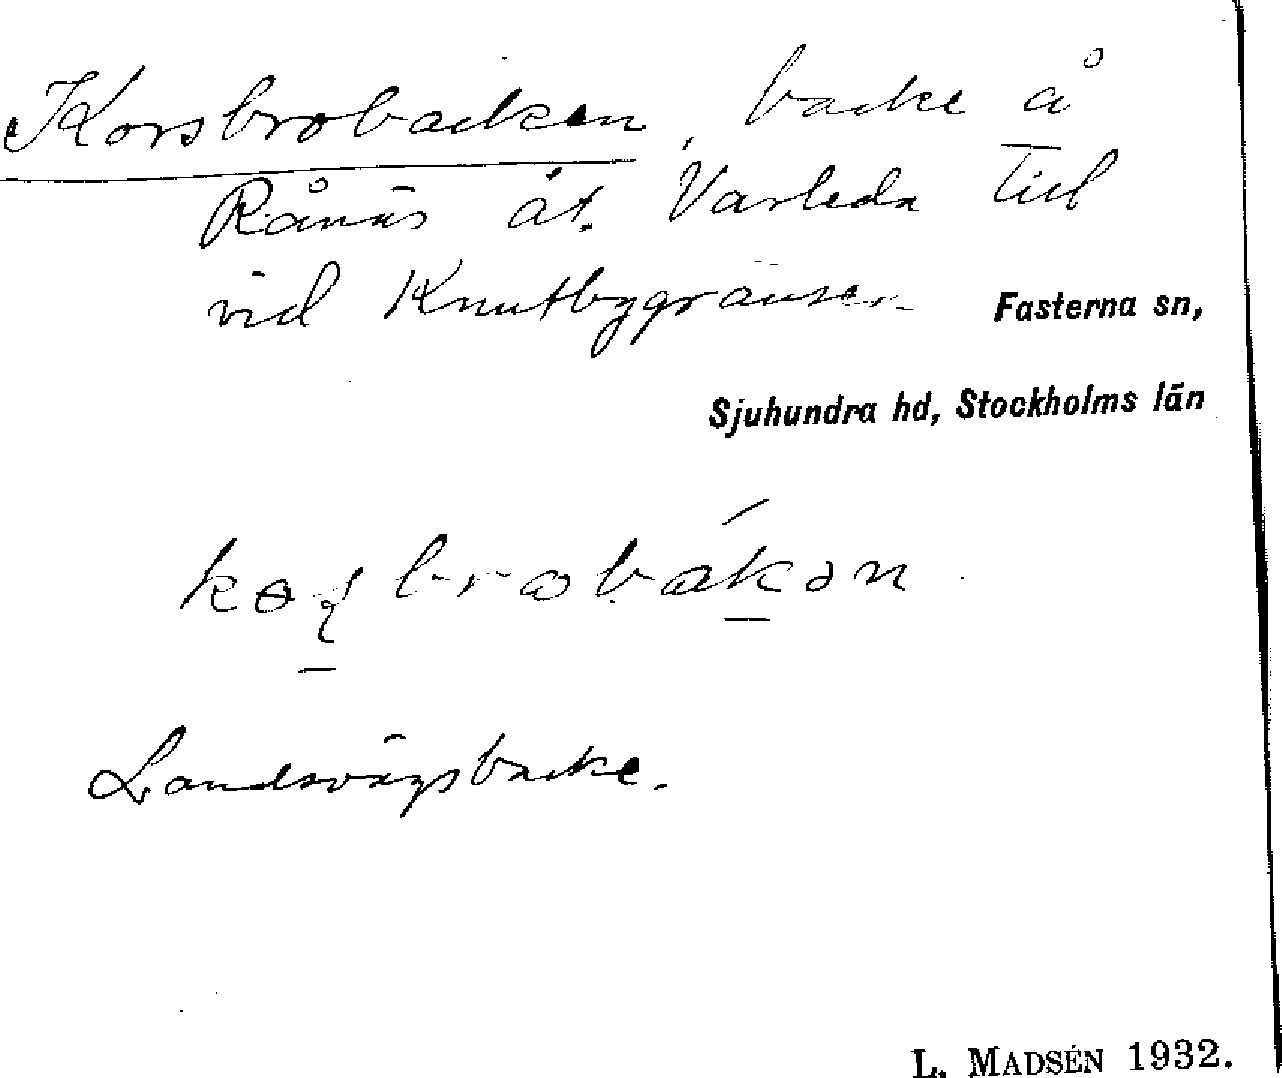 Korsbrobacken, backe å
Rånäs åt Varleda till
vid Knutbygränsen
Fasterna sn,
Sjuhundra hd, Stockholms län
Landsvägsbacke.
L. MADSÉN 1932.